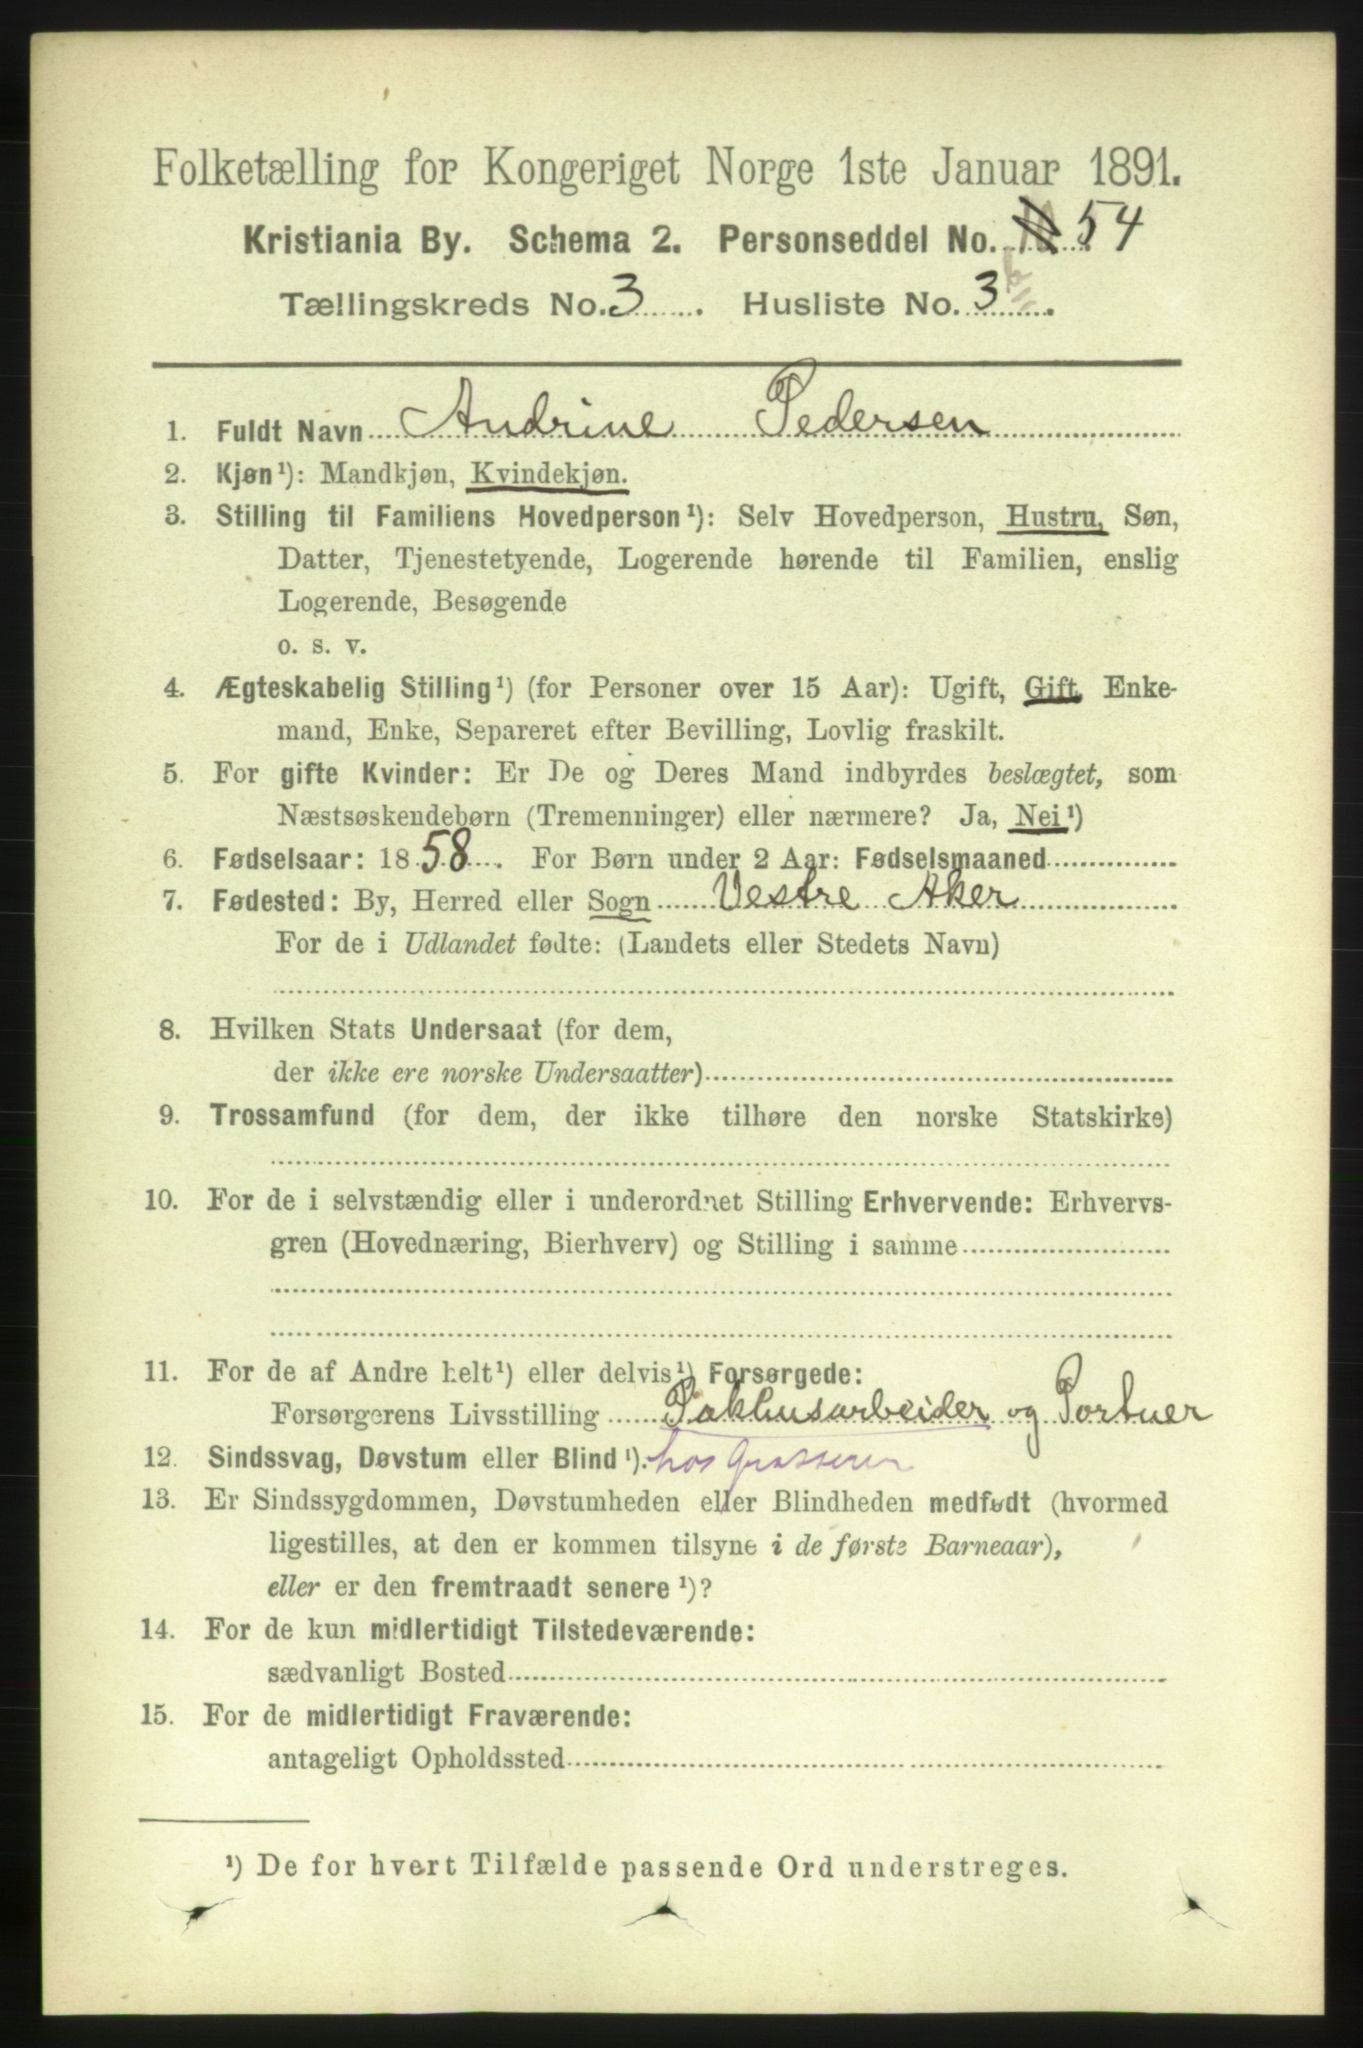 Folketælling for Kongeriget Norge 1ste Januar 1891.
Kristiania By. Schema 2. Personseddel No. 54
Tællingskreds No. 3. Husliste No. 3.
1. Fuldt Navn Andrine Pedersen
2. Kjøn¹): Mandkjøn, Kvindekjøn.
3. Stilling til Familiens Hovedperson¹): Selv Hovedperson, Hustru, Søn,
Datter, Tjenestetyende, Logerende hørende til Familien, enslig
Logerende, Besøgende
o. s. v.
4. Ægteskabelig Stilling¹) (for Personer over 15 Aar): Ugift, Gift, Enke-
mand, Enke, Separeret efter Bevilling, Lovlig fraskilt.
5. For gifte Kvinder: Er De og Deres Mand indbyrdes beslægtet, som
Næstsøskendebørn (Tremenninger) eller nærmere? Ja, Nei¹)
6. Fødselsaar: 1858. For Børn under 2 Aar: Fødselsmaaned
7. Fødested: By, Herred eller Sogn Vestre Aker
For de i Udlandet fødte: (Landets eller Stedets Navn)
8. Hvilken Stats Undersaat (for dem,
der ikke ere norske Undersaatter)
9. Trossamfund (for dem, der ikke tilhøre den norske Statskirke)
10. For de i selvstændig eller i underordnet Stilling Erhvervende: Erhvervs-
gren (Hovednæring, Bierhverv) og Stilling i samme
11. For de af Andre helt¹) eller delvis¹) Forsørgede:
Forsørgerens Livsstilling Pakhusarbeider og Portner
12. Sindssvag, Døvstum eller Blind¹). hos
13. Er Sindssygdommen, Døvstumheden eller Blindheden medfødt (hvormed
ligestilles, at den er kommen tilsyne i de første Barneaar),
eller er den fremtraadt senere¹)?
14. For de kun midlertidigt Tilstedeværende:
sædvanligt Bosted
15. For de midlertidigt Fraværende:
antageligt Opholdssted
¹) De for hvert Tilfælde passende Ord understreges.